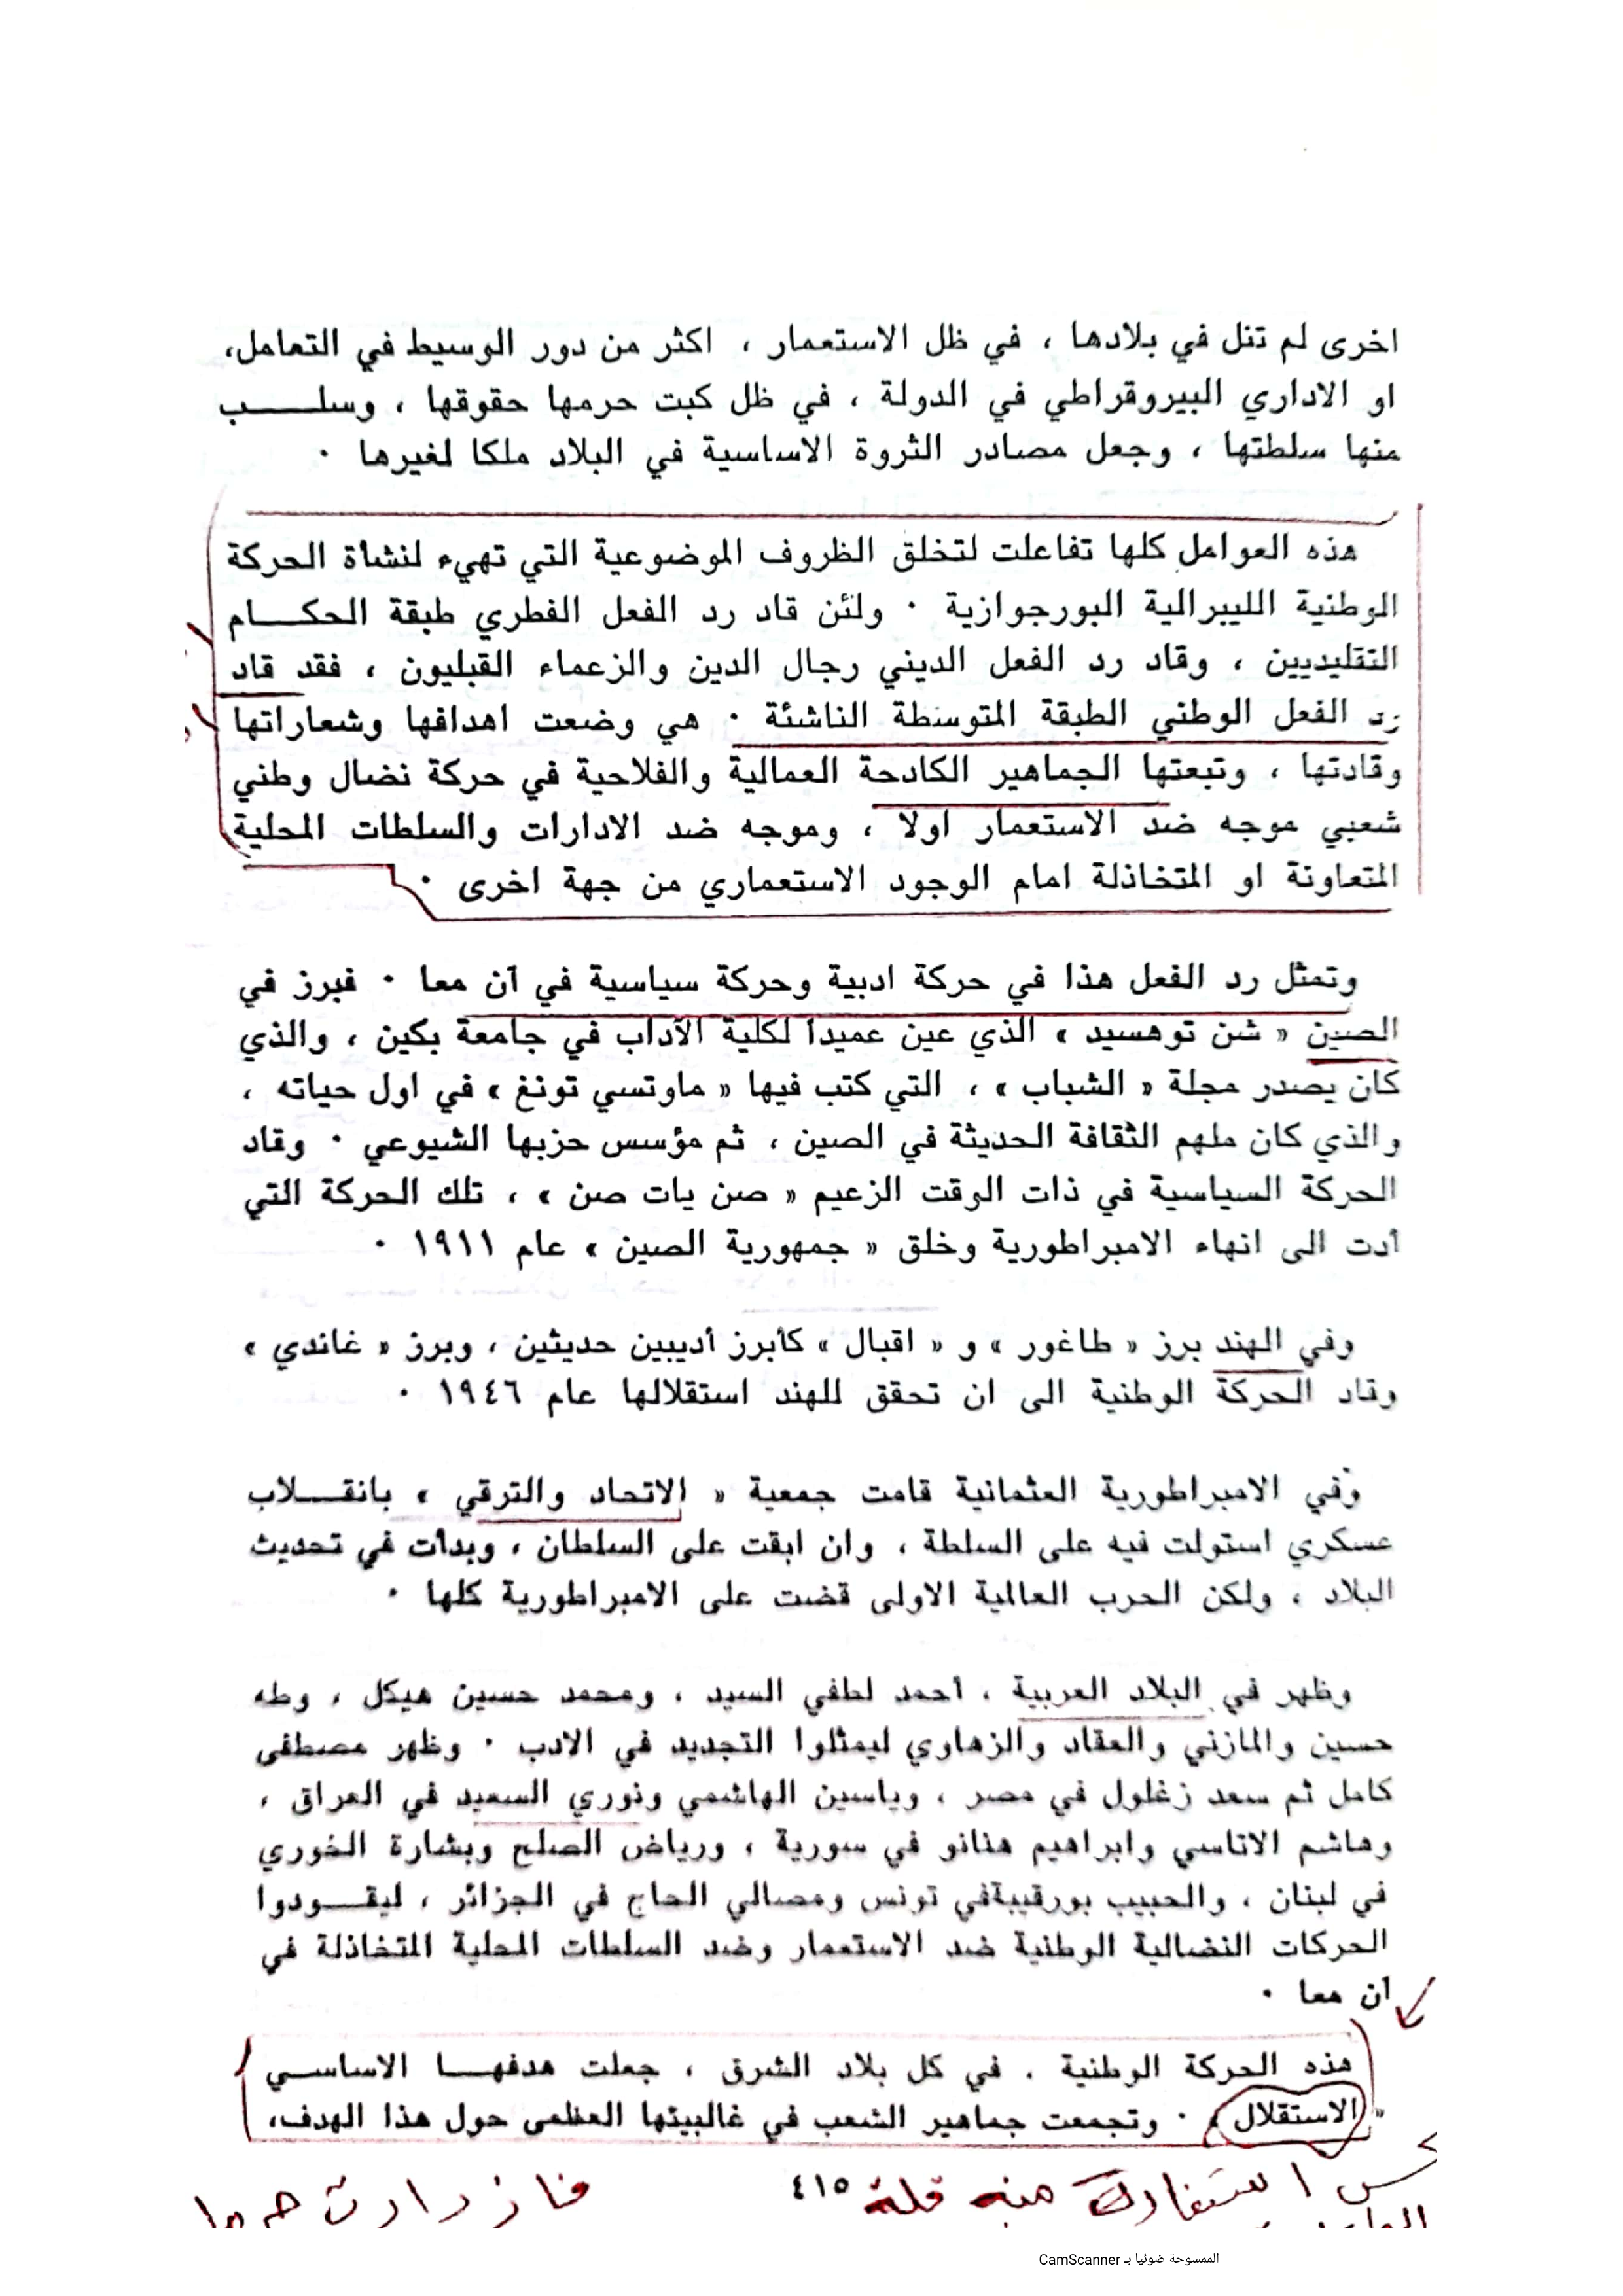 اخرى لم تنل في بلادها ، في ظل الاستعمار ، اكثر من دور الوسيط في التعامل،
او الاداري البيروقراطي في الدولة ، في ظل كبت حرمها حقوقها ، وسلب
منها سلطتها ، وجعل مصادر الثروة الاساسية في البلاد ملكا لغيرها ٠
هذه العوامل كلها تفاعلت لتخلق الظروف الموضوعية التي تهيء لنشأة الحركة
الوطنية الليبرالية البورجوازية ٠ ولئن قاد رد الفعل الفطري طبقة الحكام
التقليديين ، وقاد رد الفعل الديني رجال الدين والزعماء القبليون ، فقد قاد
رد الفعل الوطني الطبقة المتوسطة الناشئة ٠ هي وضعت اهدافها وشعاراتها
وقادتها ، وتبعتها الجماهير الكادحة العمالية والفلاحية في حركة نضال وطني
شعبي موجه ضد الاستعمار اولا ، وموجه ضد الادارات والسلطات المحلية
المتعاونة او المتخاذلة امام الوجود الاستعماري من جهة اخرى ٠
وتمثل رد الفعل هذا في حركة ادبية وحركة سياسية في آن معا ٠ فبرز في
الصين « شن توهسيد » الذي عين عميداً لكلية الآداب في جامعة بكين ، والذي
كان يصدر مجلة « الشباب » ، التي كتب فيها « ماوتسي تونغ » في اول حياته ،
والذي كان ملهم الثقافة الحديثة في الصين ، ثم مؤسس حزبها الشيوعي ٠ وقاد
الحركة السياسية في ذات الوقت الزعيم « صن يات صن » ، تلك الحركة التي
أدت الى انهاء الامبراطورية وخلق « جمهورية الصين » عام ١٩١١ ٠
وفي الهند برز « طاغور » و « اقبال » كأبرز أديبين حديثين ، وبرز « غاندي »
وقاد الحركة الوطنية الى ان تحقق للهند استقلالها عام ١٩٤٦ ٠
وفي الامبراطورية العثمانية قامت جمعية « الاتحاد والترقي » بانقلاب
عسكري استولت فيه على السلطة ، وان ابقت على السلطان ، وبدأت في تحديث
البلاد ، ولكن الحرب العالمية الاولى قضت على الامبراطورية كلها ٠
وظهر في البلاد العربية ، أحمد لطفي السيد ، ومحمد حسين هيكل ، وطه
حسين والمازني والعقاد والزهاوي ليمثلوا التجديد في الادب ٠ وظهر مصطفى
كامل ثم سعد زغلول في مصر ، وياسين الهاشمي ونوري السعيد في العراق ،
وهاشم الاتاسي وابراهيم هنانو في سورية ، ورياض الصلح وبشارة الخوري
في لبنان ، والحبيب بورقيبةفي تونس ومصالي الحاج في الجزائر ، ليقودوا
الحركات النضالية الوطنية ضد الاستعمار وضد السلطات المحلية المتخاذلة في
آن معا ٠
هذه الحركة الوطنية ، في كل بلاد الشرق ، جعلت هدفها الاساسي
« الاستقلال » ٠ وتجمعت جماهير الشعب في غالبيتها العظمى حول هذا الهدف،
منه قلة
٤١٥
الممسوحة ضوئيا بـ CamScanner